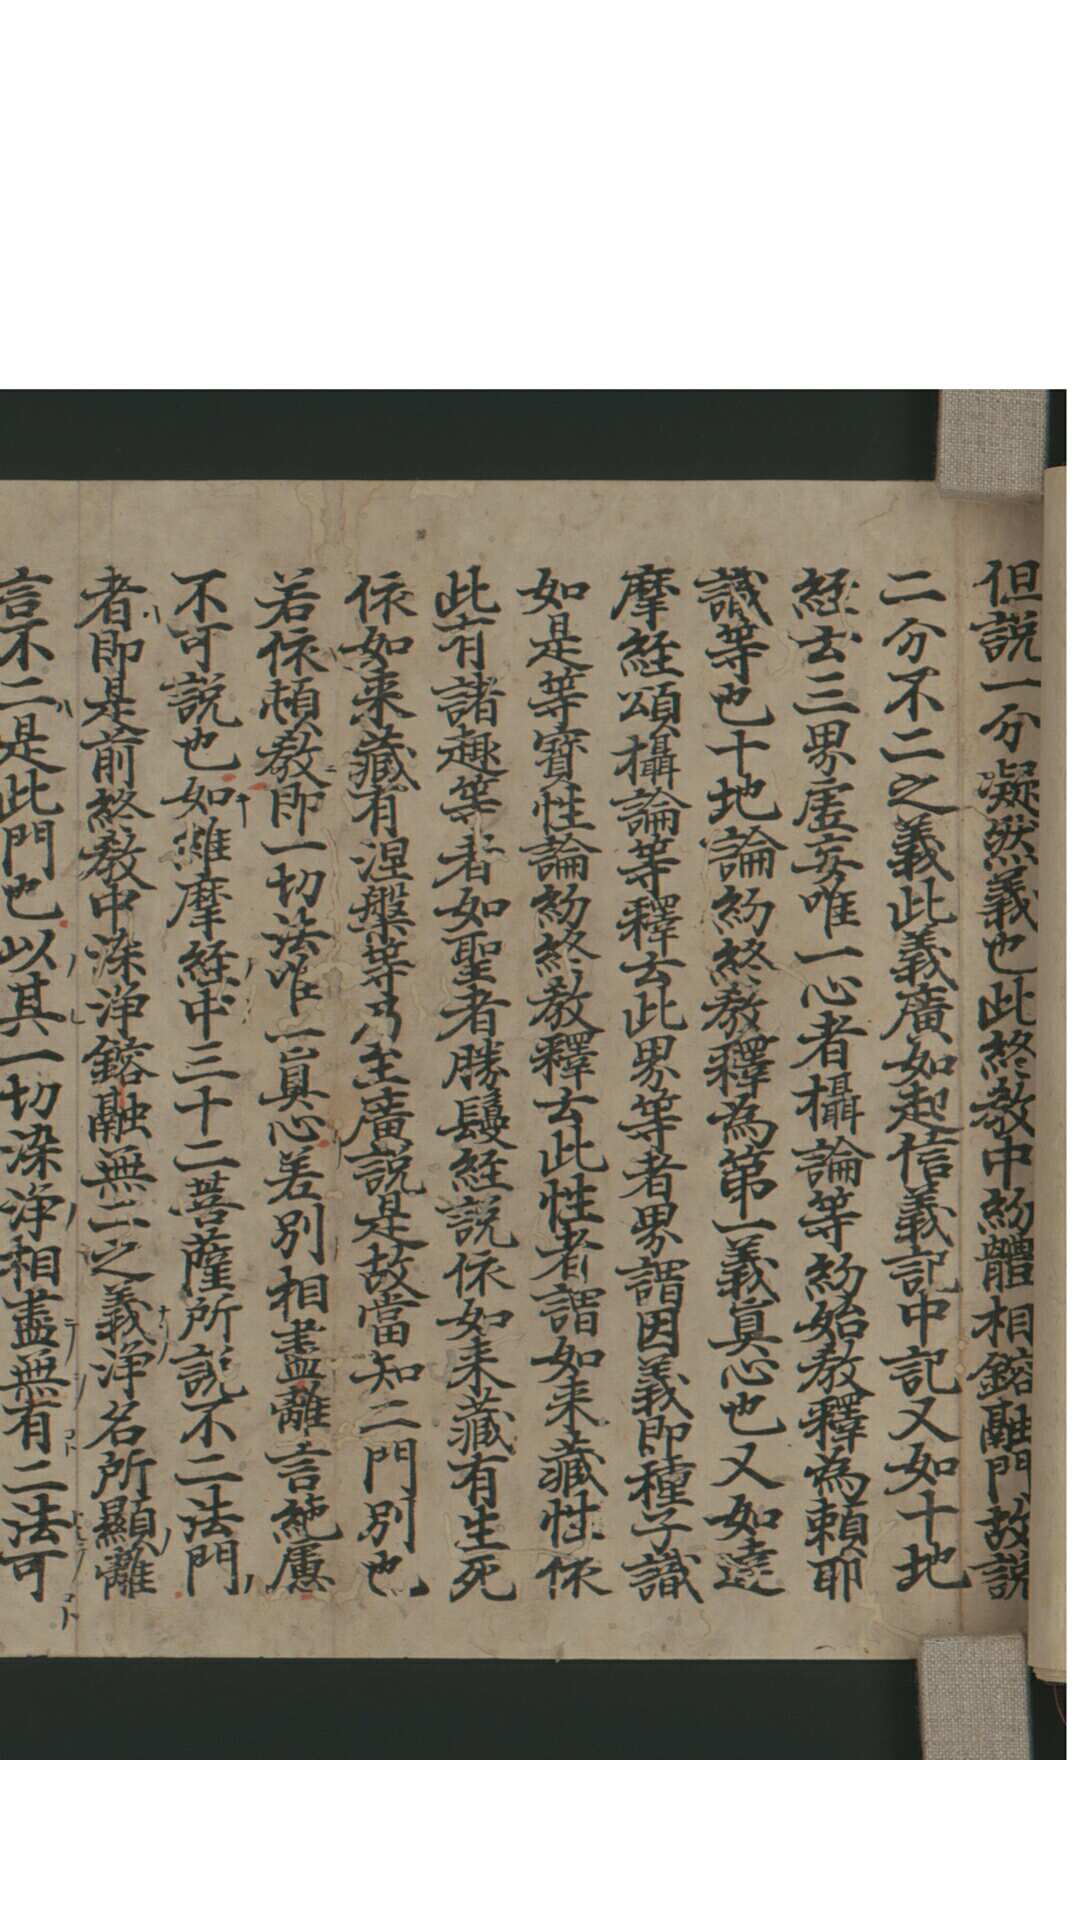 但説一分凝然義也此終教中約體相鎔融門故説
二分不二之義此義廣如起信義記中記又如十地
經云三界虚妄唯一心者攝論等約始教釋為頼耶
識等也十地論約終教釋為第一義真心也又如達
摩經頌攝論等釋云此界等者界謂因義即種子識
如是等寳性論約終教釋云此性者謂如来藏性依
此有諸趣等者如聖者勝鬘經説依如来藏有生死
依如来藏有涅槃等乃至廣説是故當知二門別也
若依頓教即一切法唯一真心差別相盡離言絶慮
不可説也如維摩經中三十二菩薩所説不二法門
者即是前終教中染浄鎔融無二之義浄名所顯離
言不二是此門也以其一切染浄相盡無有二法可